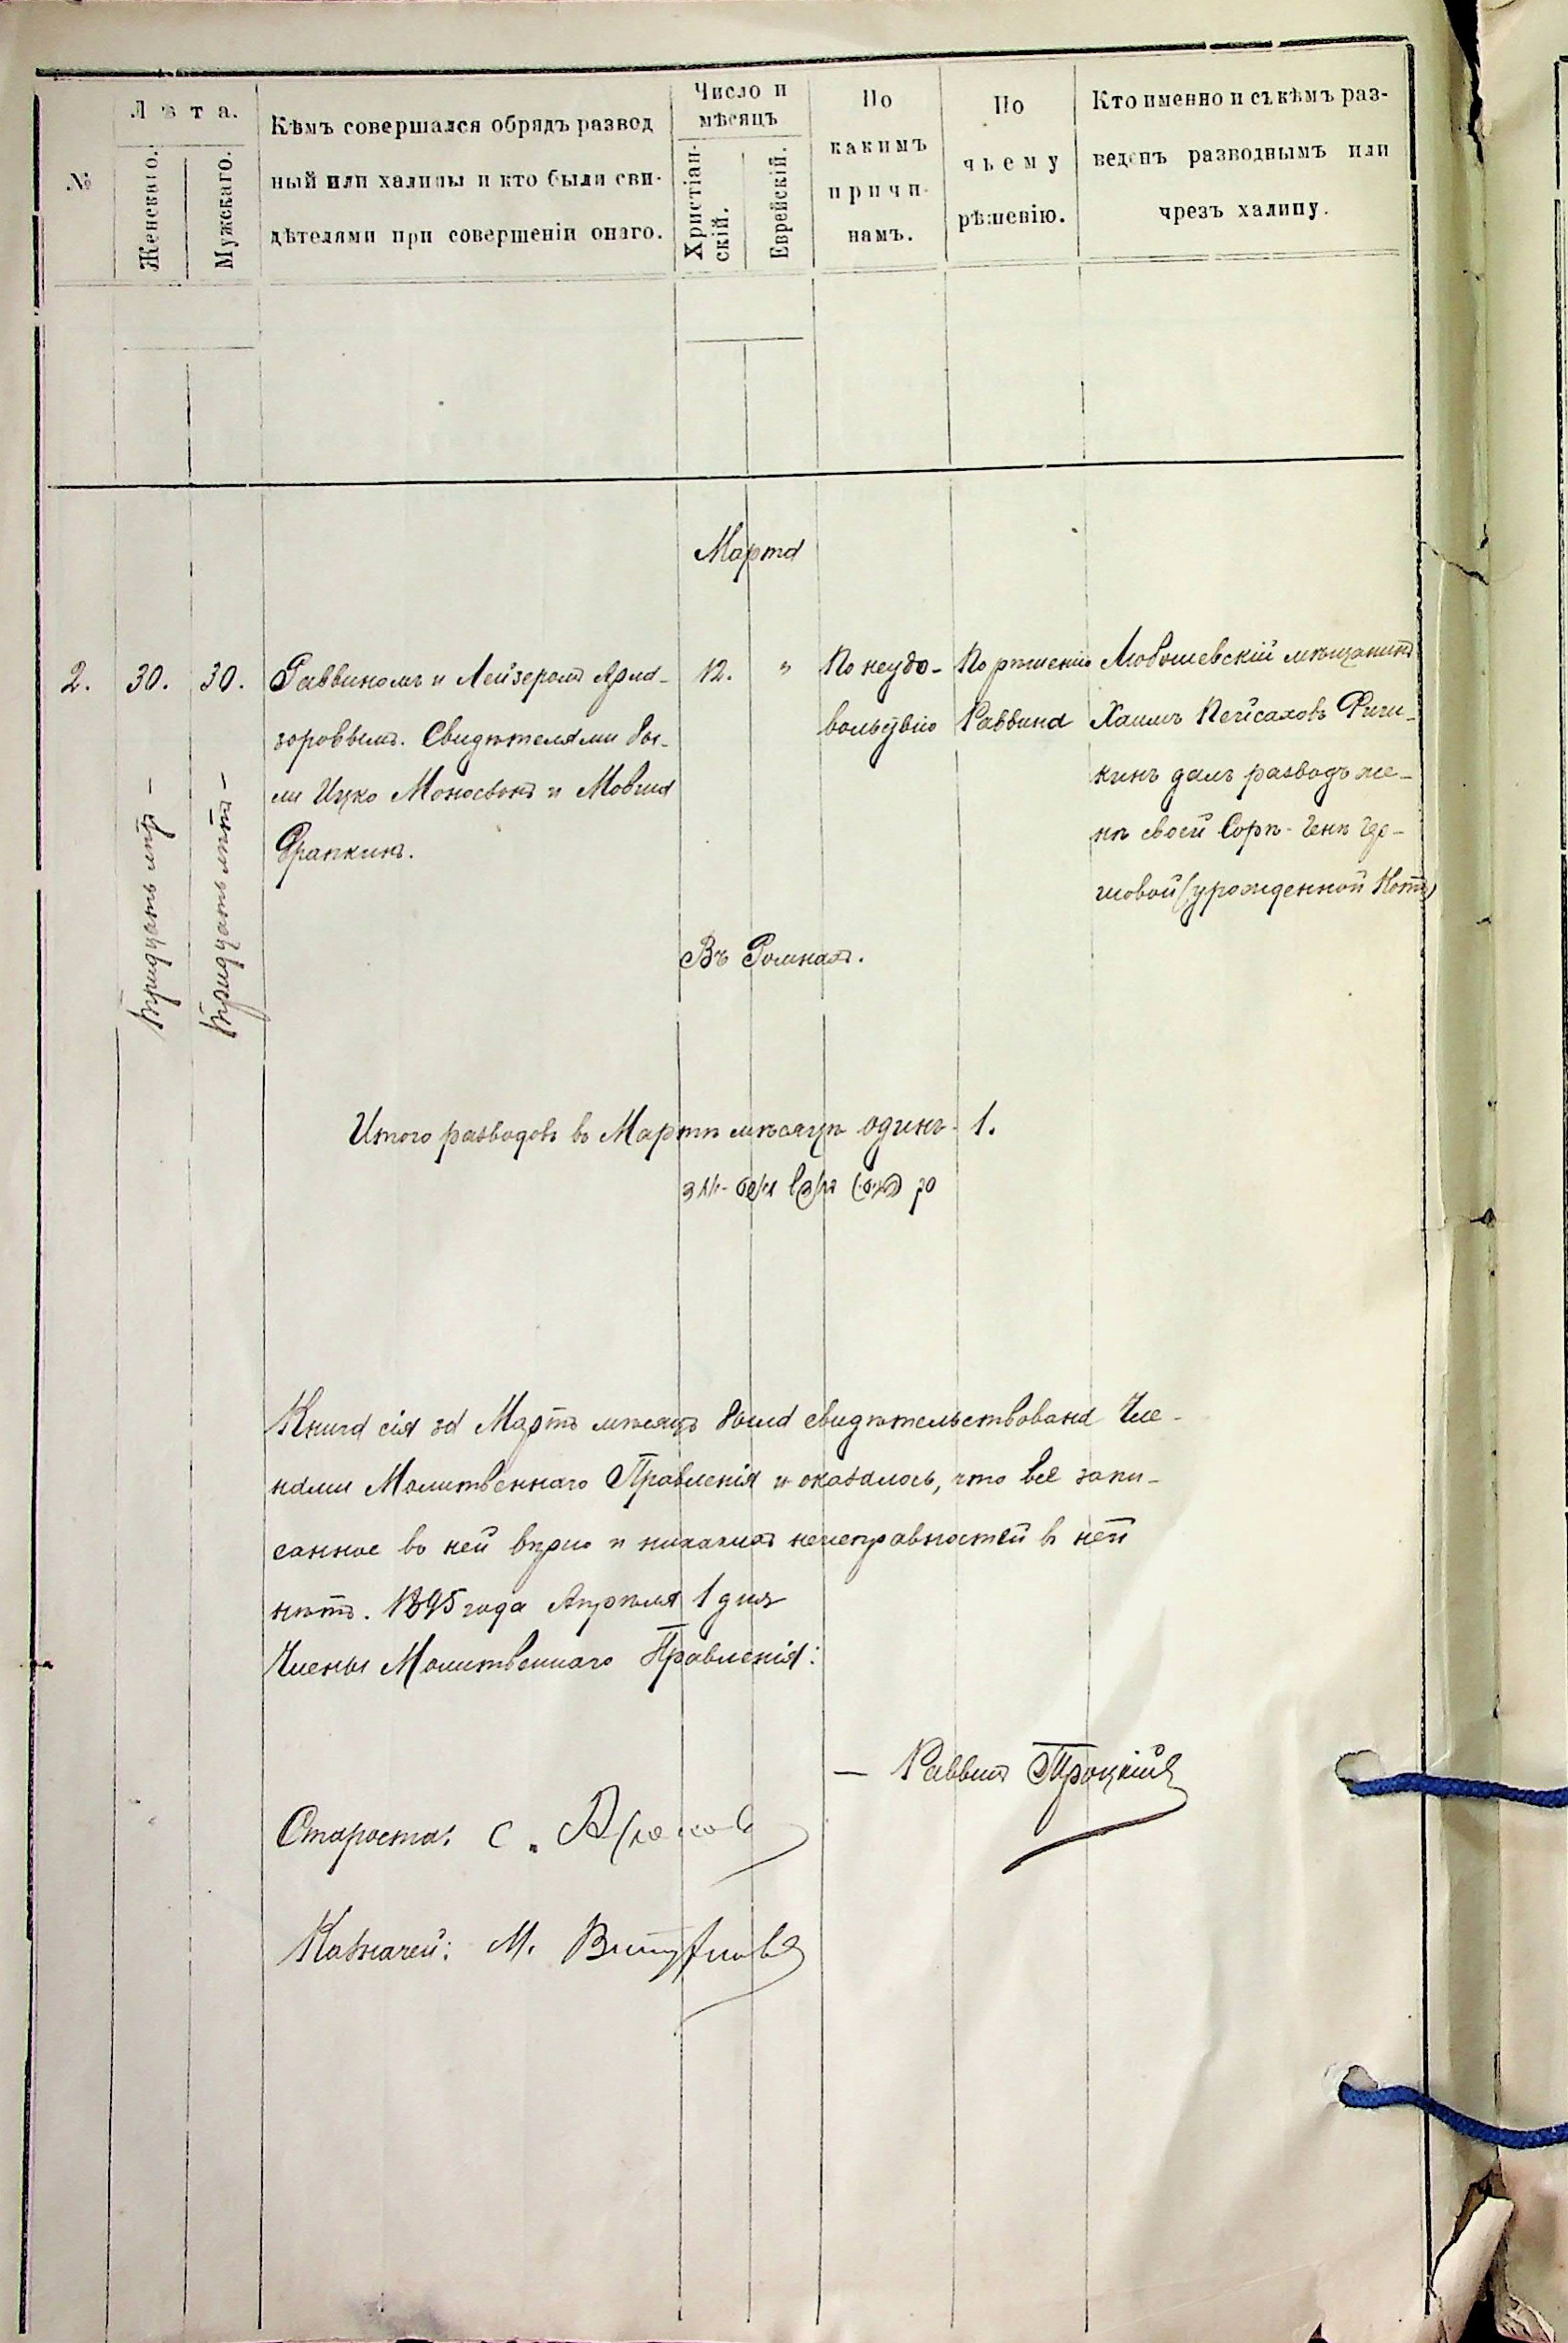 №
Лѣта.
Женскаго.
Мужскаго.
Кѣмъ совершался обрядъ развод
ный или халицы и кто были сви-
дѣтелями при совершеніи онаго.
Число и
мѣсяцъ
Христіан-
скій.
Еврейскій.
По
какимъ
причи-
намъ.
По
чьему
рѣшенію.
Кто именно и съ кѣмъ раз-
веденъ разводнымъ или
чрезъ халицу.
Марта
2.
30.
Тридцать лѣтъ —
30.
Тридцать лѣтъ —
Раввиномъ и Лейзеромъ
Свидѣтелями бы-
ли Ицко и Мовша
Фрапкинъ.
12.
"
По неудо-
вольствію
По рѣшенію
Раввина
Любошевскій мѣщанинъ
Хаимъ Пейсаховъ
кинъ далъ разводъ же-
нѣ своей Сорѣ-
(урожденной
Въ Ромнахъ.
Итого разводовъ въ Мартѣ мѣсяцѣ одинъ 1.
Книга сія за Мартъ мѣсяцъ была свидѣтельствована Чле-
нами Молитвеннаго Правленія и оказалось, что все запи-
санное въ ней вѣрно и никакихъ неисправностей въ ней
нѣтъ. 1895 года Апрѣля 1 дня
Члены Молитвеннаго Правленія:
— Раввинъ Троцкій
Староста: С.
Казначей: М.